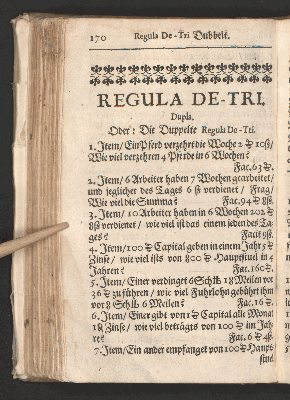 170 Regula De-Tri Dubbelt.
REGULA DE-TRI.
Dupla,
Oder: Die Duppelte Regula De-Tri.
1. Item/ Ein Pferd verzehrt die Woche 2 ℔ 10ß/
Wie viel verzehren 4 Pferde in 6 Wochen?
Fac. 63 ℔.
2. Item/ 6 Arbeiter haben 7 Wochen gearbeitet/
und jeglicher des Tages 6 ß verdienet / Frag/
Wie viel die Summa? Fac. 94 ℔ 8ß.
3. Item/ 10 Arbeiter haben in 6 Wochen 202 ℔
8ß verdienet / wie viel ist das einem jeden des Ta-
ges? Facit 9ß.
4. Item/ 100 ℔ Capital geben in einem Jahr 5 ℔
Zinse/ wie viel ists von 800 ℔ Hauptstuel in 4
Jahren? Fac. 160 ℔.
5. Item/ Einer verdingt 6 Sch℔ 18 Meilen vor
36 ℔ zu führen / wie viel Fuhrlohn gebührt ihm
vor 8 Sch℔ 6 Meilen? Fac. 16 ℔.
6. Item/ Einer gibt von 1 ℔ Capital alle Monat
1 Zinse/ wie viel beträgts von 100 ℔ im Jah-
re? Fac. 6 ℔ 4ß.
7. Item/ Ein ander empfanget von 100 ℔ Haupt-
stuel